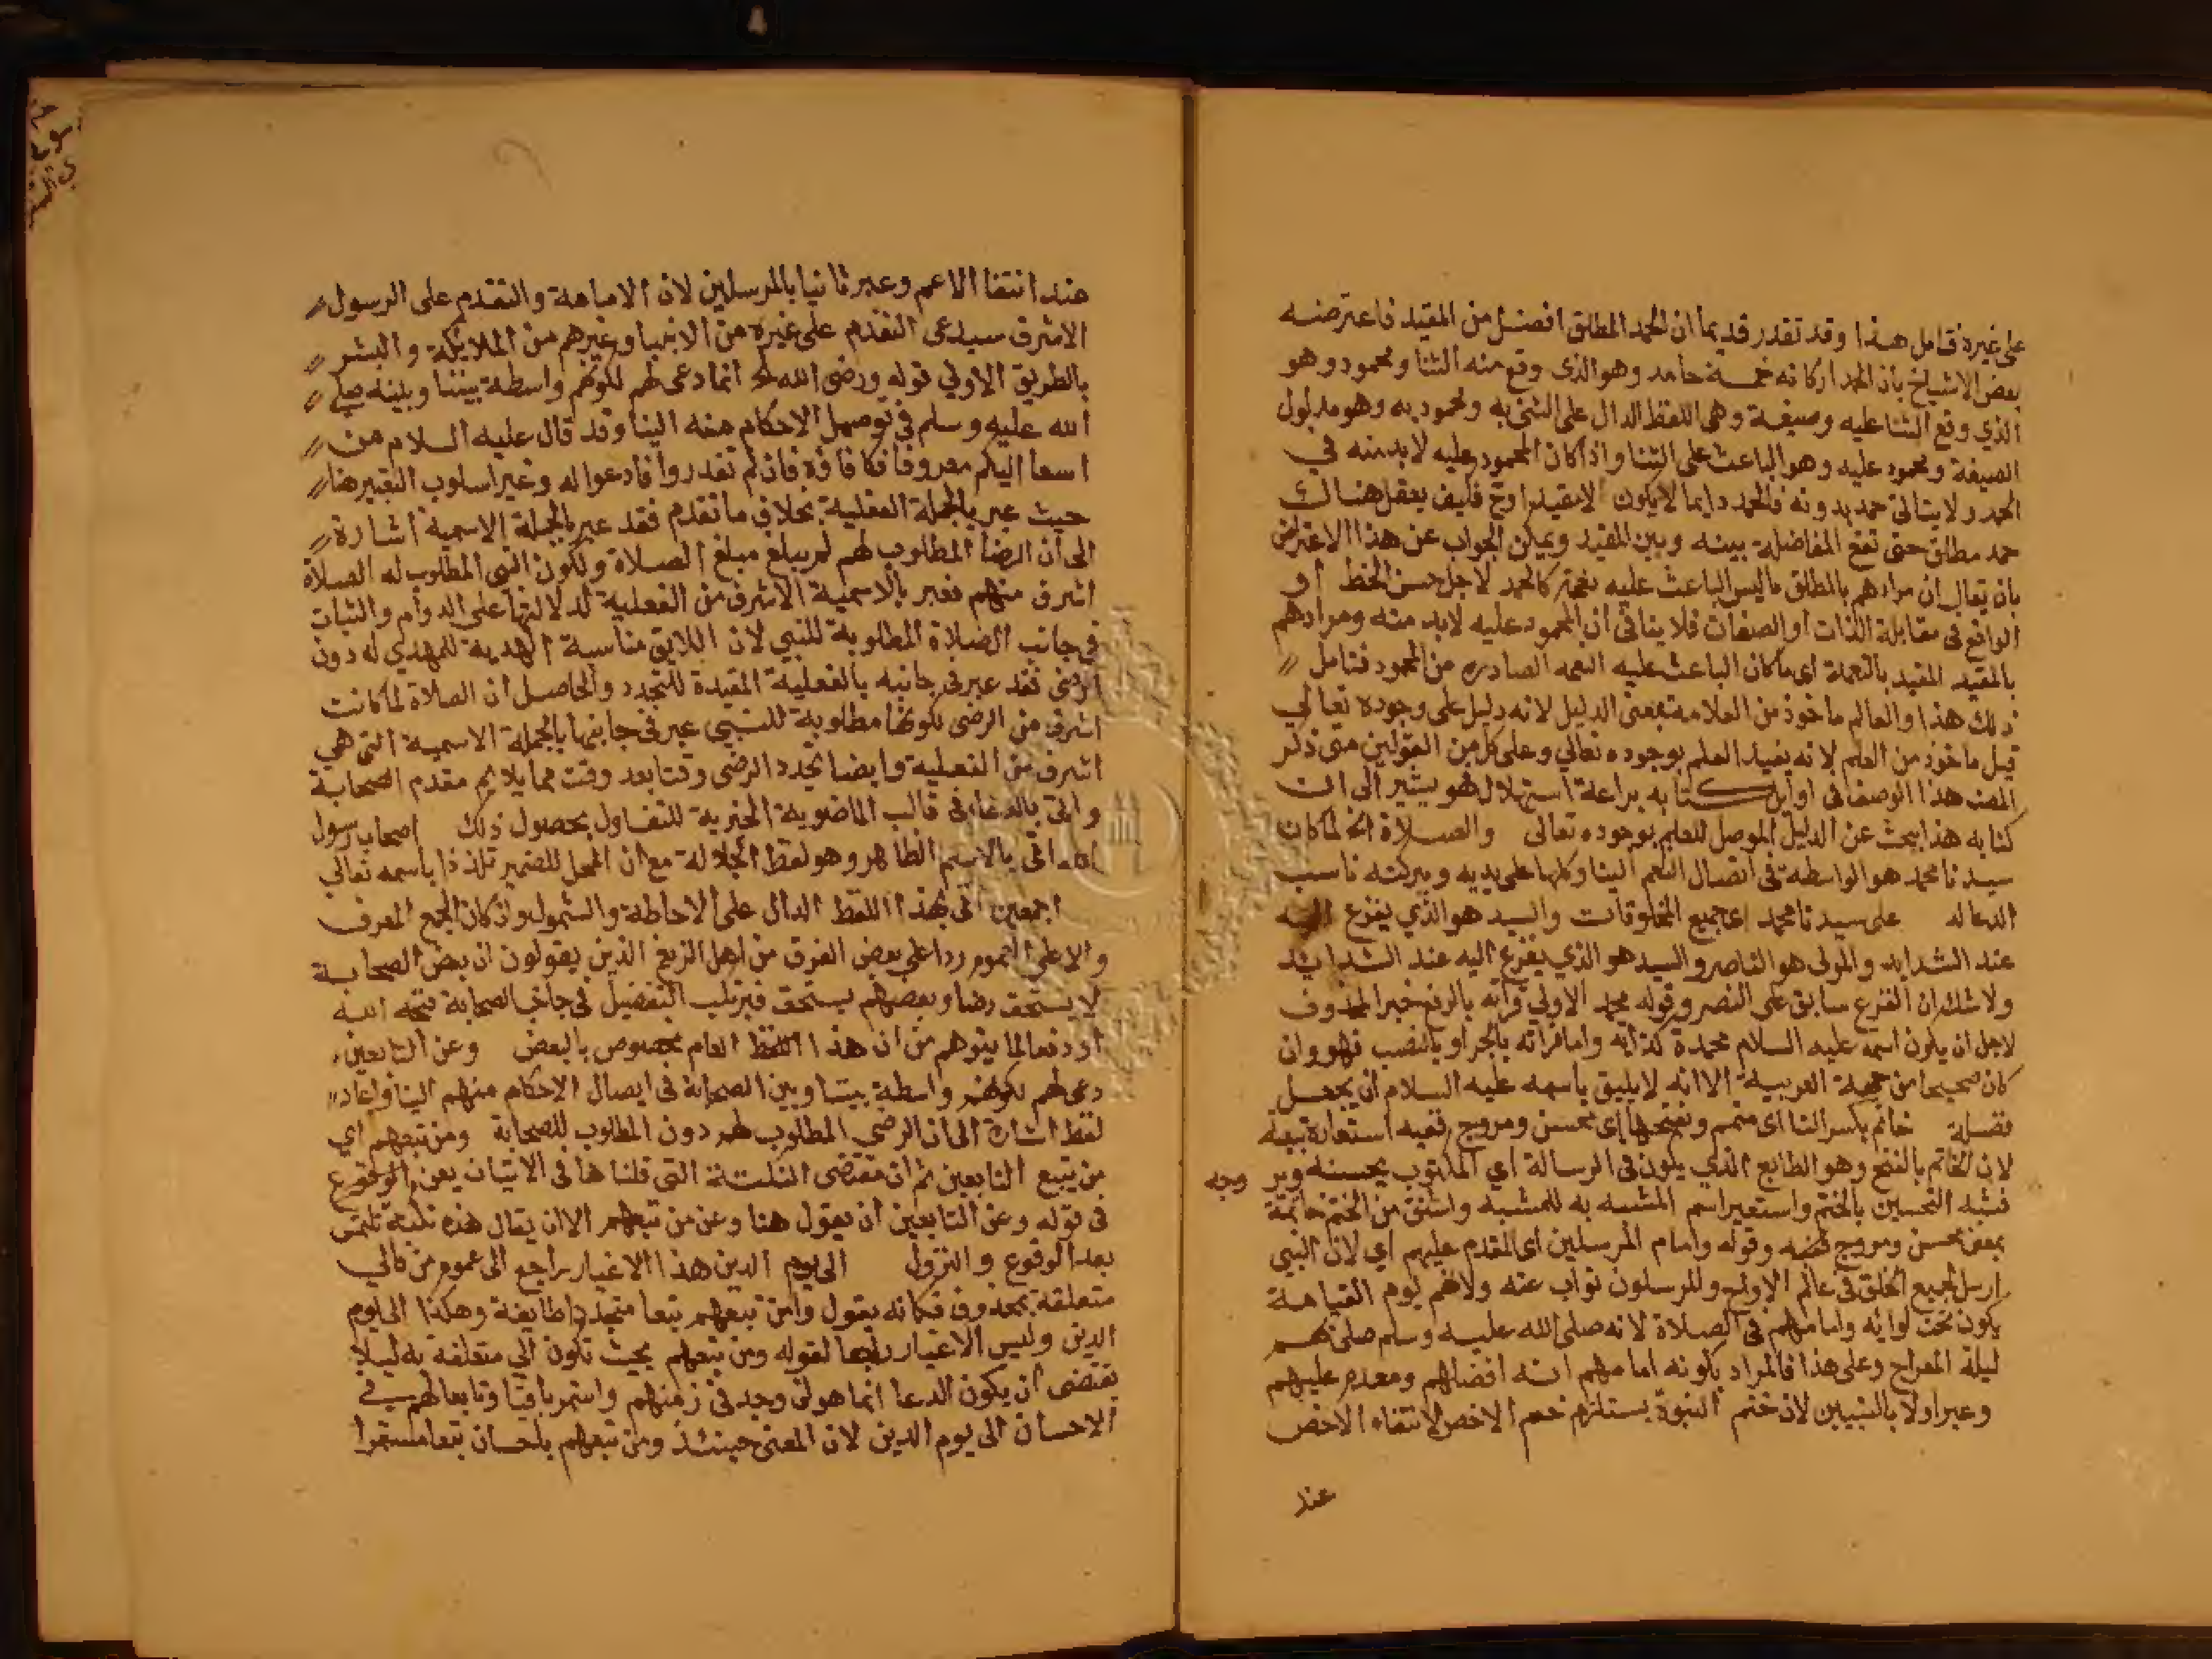 على غيره فتامل هذا وقد تقدر قديما ان الحمد المطلق افضل من المقيد فاعترضه
بعض الاشياخ بان الحمد اركانه خمسة حامد وهو الذي وقع منه الثنا ومحمود وهو
الذي وقع الثنا عليه وصيغة وهي اللفظ الدال على الثنى به ومحمود به وهو مدلول
الصيغة ومحمود عليه وهو الباعث على الثنا واذا كان المحمود عليه لابد منه في
الحمد ولا يتاتى حمد بدونه فالحمد دايما لا يكون الا مقيدا وح فكيف يعقل هناك
حمد مطلق حتى تقع المفاضلة بينه وبين المقيد ويمكن الجواب عن هذا الاعتراض
بان يقال ان مرادهم بالمطلق ما ليس الباعث عليه كالحمد لاجل حسن الخط او
الواقع في مقابلة الذات او الصفات فلا ينافي ان المحمود عليه لابد منه ومرادهم
بالمقيد المقيد بالنعمة اي ما كان الباعث عليه النعمه الصادره من المحمود فتامل
ذلك هذا والعالم ماخوذ من العلامة بمعنى الدليل لانه دليل على وجوده تعالي
قيل ماخوذ من العلم لانه يفيد العلم بوجوده تعالي وعلى كل من القولين متى ذكر
المصنف هذا الوصف في اوايل كتابه براعة استهلال فهو يشير الى ان
كتابه هذا يبحث عن الدليل الموصل للعلم بوجوده تعالى والصلاة الخ لما كان
سيدنا محمد هو الواسطة في اتصال النعم الينا وكلها على يديه وببركته ناسب
الدعا له على سيدنا محمد اي جميع المخلوقات والسيد هو الذي يفزع اليه
عند الشدايد والمولى هو الناصر والسيد هو الذي يفزع اليه عند الشدايد
ولا شك ان الفزع سابق على النصر وقوله محمد الاولي قراته بالرفع خبر المحذوف
لاجل ان يكون اسمه عليه السلام عمدة كذاته واما قراته بالجر او بالنصب فهو وان
كان صحيحا من جهة العربية الا انه لا يليق باسمه عليه السلام ان يجعل
فضلة خاتم بكسر التا اي متمم وبفتحها اي محسن ومروج ففيه استعارة تبعية
لان الخاتم بالفتح وهو الطابع الذي يكون في الرسالة اي المكتوب يحسنه وير وجه
فشبه التحسين بالختم واستعير اسم المشبه به للمشبه واشتق من الختم خاتمة
بمعنى محسن ومروج وقوله وامام المرسلين اي المقدم عليهم اي لان النبي
ارسل لجميع الخلق في عالم الارواح والمرسلون نواب عنه ولانهم يوم القيامة
يكون تحت لوائه وامامهم في الصلاة لانه صلى الله عليه وسلم صلى بهم
ليلة المعراج وعلى هذا فالمراد بكونه امامهم انه افضلهم ومقدم عليهم
وعبر اولا بالنبيين لان ختم النبوة يستلزم ختم الاخص لانتفاء الاخص
عند
عند انتفا الاعم وعبر ثانيا بالمرسلين لان الامامة والتقدم على الرسول
الاشرف سيدعى التقدم على غيره من الانبيا وغيرهم من الملايكة والبشر
بالطريق الاولي قوله ورضى الله الخ انما دعى لهم لكونهم واسطة بيننا وبينه صلى
الله عليه وسلم في توصيل الاحكام منه الينا وقد قال عليه السلام من
اسعا اليكم معروفا فكافاوه فان لم تقدروا فادعوا له وغير اسلوب التعبير هنا
حيث عبر بالجملة الفعلية بخلاف ما تقدم فقد عبر بالجملة الاسمية اشارة
الى ان الرضا المطلوب لهم لم يبلغ مبلغ الصلاة ولكون النبي المطلوب له الصلاة
اشرف منهم فعبر بالاسمية الاشرف من الفعلية لدلالتها على الدوام والثبات
في جانب الصلاة المطلوبة للنبي لان اللايق مناسبة الهدية للمهدي له دون
الرضى فقد عبر في جانبه بالفعلية المقيدة للتجدد والحاصل ان الصلاة لما كانت
اشرف من الرضى لكونها مطلوبة للنبي عبر في جانبها بالجملة الاسمية التي هي
اشرف من الفعلية وايضا تجدد الرضى وقتا بعد وقت مما يلايم مقدم الصحابة
واتى بالدعاء في قالب الماضوية الخبرية للتفاول بحصول ذلك اصحاب رسول
الله اتى بالاسم الظاهر وهو لفظ الجلالة مع ان المحل للضمير تلذذا باسمه تعالي
اجمعين اتى بهذا اللفظ الدال على الاحاطة والشمول وان كان الجمع المعرف
والا على العموم ردا على بعض الفرق من اهل الزيغ الذين يقولون ان بعض الصحابة
لا يستحق رضا وبعضهم يستحق التفضيل في جانب الصحابة
او دفعا لما يتوهم من ان هذا اللفظ العام مخصوص بالبعض وعن التابعين
دعى لهم لكونهم واسطة بيننا وبين الصحابة في ايصال الاحكام منهم الينا واعاد
لفظ اشارة الى ان الرضى المطلوب لهم دون المطلوب للصحابة ومن تبعهم اي
من يتبع التابعين ثم ان مقتضى النكتة التي قلناها في الاتيان بعن
في قوله وعن التابعين ان يقول هنا وعن من تبعهم الا ان يقال هذه نكتة تلتمس
بعد الوقوع والنزول الى يوم الدين هذا الاغيا راجع الى عموم من كالي
متعلقة بمحذوف فكانه يقول وامن تبعهم تبعا متجددا طايفة وهكذا الى يوم
الدين وليس الاغيا راجعا لقوله ومن تبعهم بحيث تكون الى متعلقة به ليلا
يقتضى ان يكون الدعا انما هو لمن وجد في زمنهم واستمر باقيا وتابعا لهم في
الاحسان الى يوم الدين لان المعنى حينئذ ومن تبعهم باحسان تبعا مستمرا